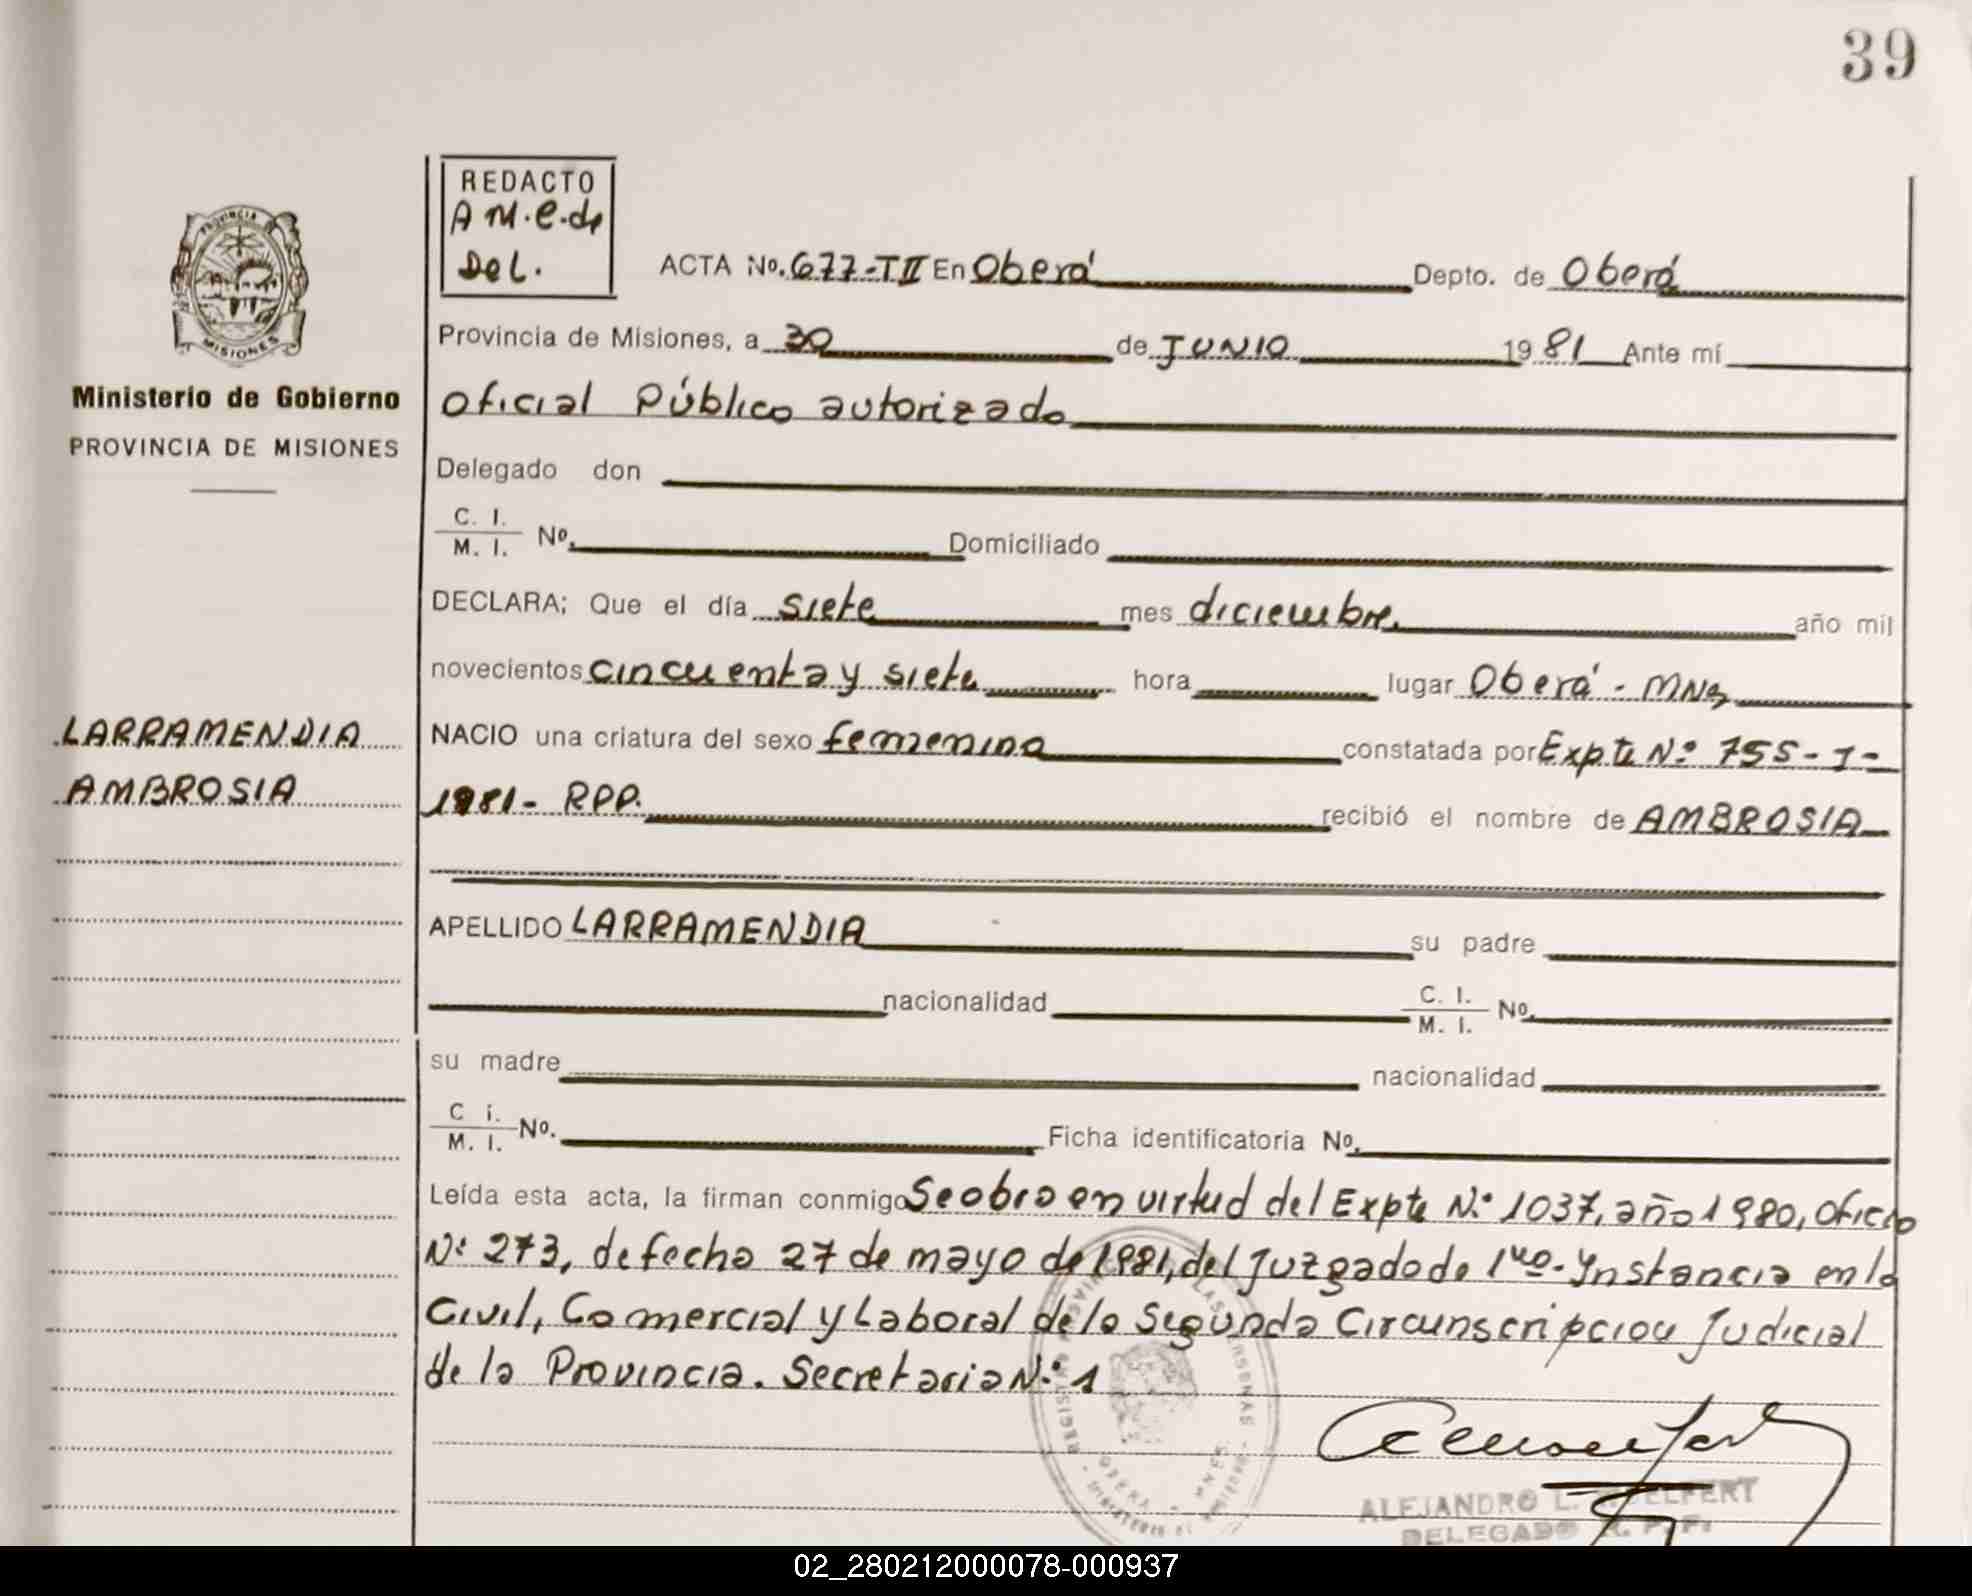 39
REDACTO
A M.C.de
Del.
ACTA No. 677-TII En Oberá Depto. de Oberá
Provincia de Misiones, a 30 de JUNIO 1981 Ante mí
Oficial Público autorizado
Delegado don
C. I.
M. I. No. Domiciliado
DECLARA; Que el día siete mes diciembre año mil
novecientos cincuenta y siete hora lugar Oberá - Mnes
NACIO una criatura del sexo femenino constatada por Expte Nº 755-I-
1981- RPP. recibió el nombre de AMBROSIA
APELLIDO LARRAMENDIA su padre
nacionalidad C. I.
M. I. No.
su madre nacionalidad
C i.
M. I. No. Ficha identificatoria No.
Leída esta acta, la firman conmigo Se obro en virtud del Expte Nº 1037, año 1980, Oficio
Nº 273, de fecha 27 de mayo de 1981, del Juzgado de 1ro. Ynstancia en lo
Civil, Comercial y Laboral de la Segunda Circunscripcion Judicial
de la Provincia. Secretaria Nº 1
ALEJANDRO L.
DELEGADO R. P. P.
PROVINCIA DE
MISIONES
Ministerio de Gobierno
PROVINCIA DE MISIONES
LARRAMENDIA
AMBROSIA
02_280212000078-000937